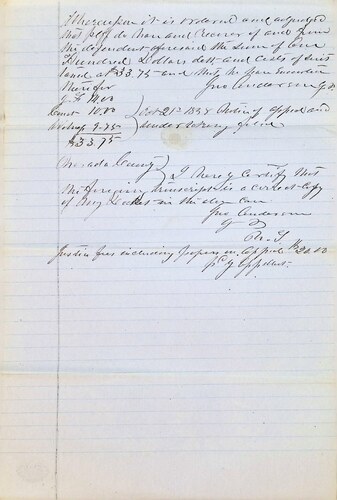 Whereupon it is ordered and adjudged
that plff do have and recover of and from
the defendant aforesaid the sum of One
Hundred Dollars debt and costs of suit
taxed at $33.75 and that he have Execution
therefor Jno Anderson J.P.
Const 10.00 Oct 21st 1858 Notice of appeal and
9.75 undertaking given
$33.75
Nevada County I hereby Certify that
the foregoing transcript is a correct copy
of my Docket in the above case
Jno Anderson
J P
Justice fees including papers on Appeal $20.00
pd by Appellant.